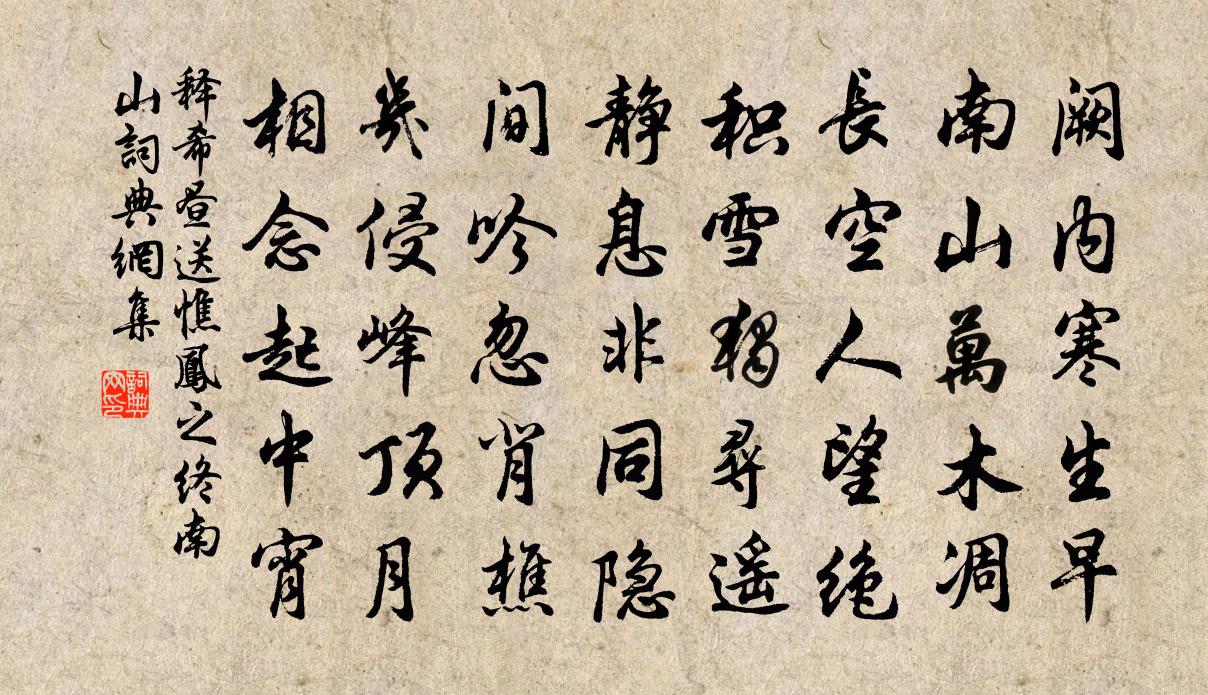 阙内寒生早
南山萬木凋
長空人望绝
积雪獨尋遥
静息非同隐
间吟忽肖樵
幾侵峰顶月
相念起中宵
释希昼送憔鳳之终南
山詞典網集
詞典网印